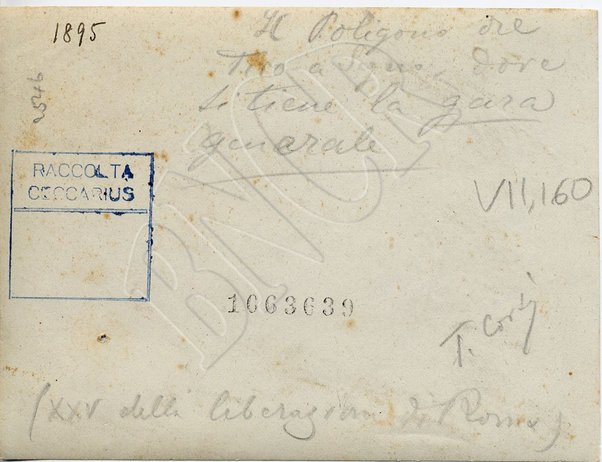 1895
Il Poligono del
Tiro a Segno, dove
si tiene la gara
generale
2546
RACCOLTA
CECCARIUS
VII,160
1063639
T. Corsi
(XXV della liberazione di Roma)
BNCR